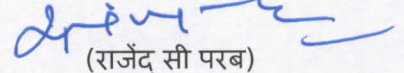 (राजेंद सी परब)